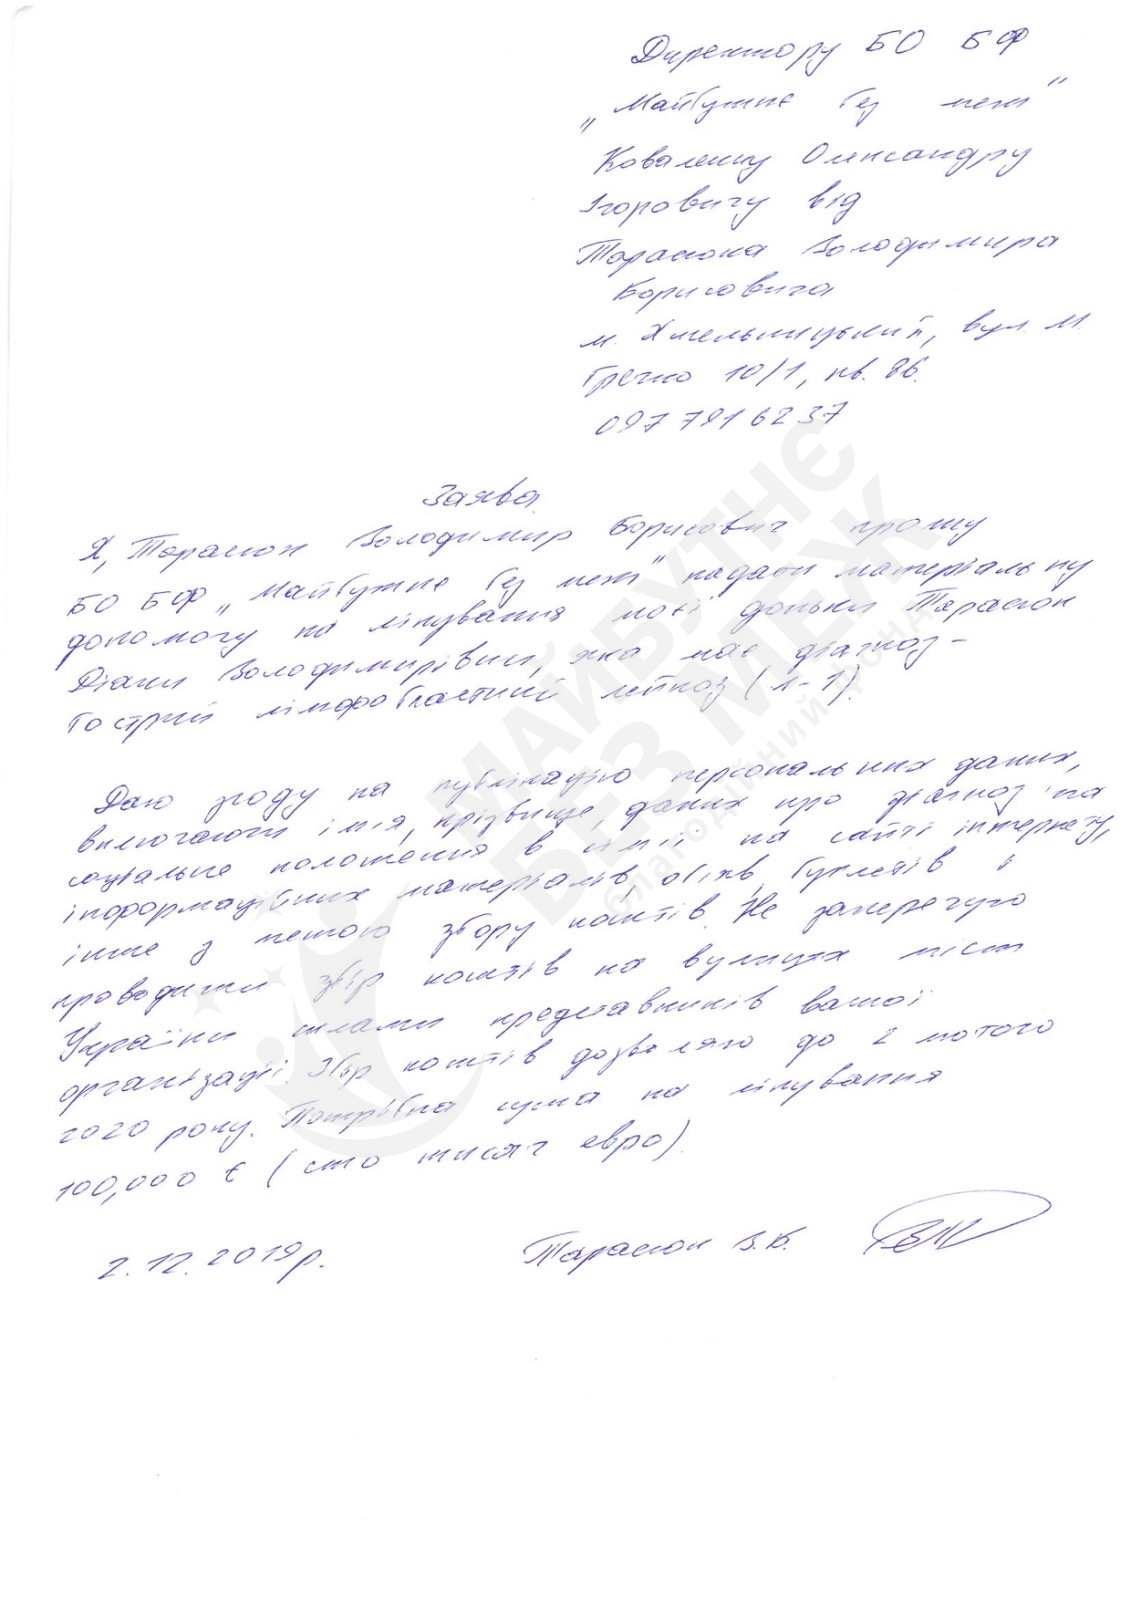 Директору БО БФ
„Майбутнє без меж"
Коваленку Олександру
Ігоровичу від
Тарасюка Володимира
Борисовича
м. Хмельницький, вул. М.
Гречко 10/1, кв. 86.
097 791 62 37
Заява
Я, Тарасюк Володимир Борисович прошу
БО БФ „Майбутнє без меж" надати матеріальну
допомогу на лікування моєї доньки Тарасюк
Діани Володимирівни, яка має діагноз -
Гострий лімфобластний лейкоз (л-1).
Даю згоду на публікацію персональних даних,
включаючи ім'я, прізвище, даних про діагноз та
соціальне положення в сім'ї на сайті інтернету,
інформаційних матеріалів, об'яв, буклетів і
інше з метою збору коштів. Не заперечую
проводити збір коштів на вулицях міст
України силами представників вашої
організації. Збір коштів дозволяю до 2 лютого
2020 року. Потрібна сума на лікування
100,000 € (сто тисяч евро).
2.12.2019р.
Тарасюк В.Б.
МАЙБУТНЄ
БЕЗ МЕЖ
благодійний фонд